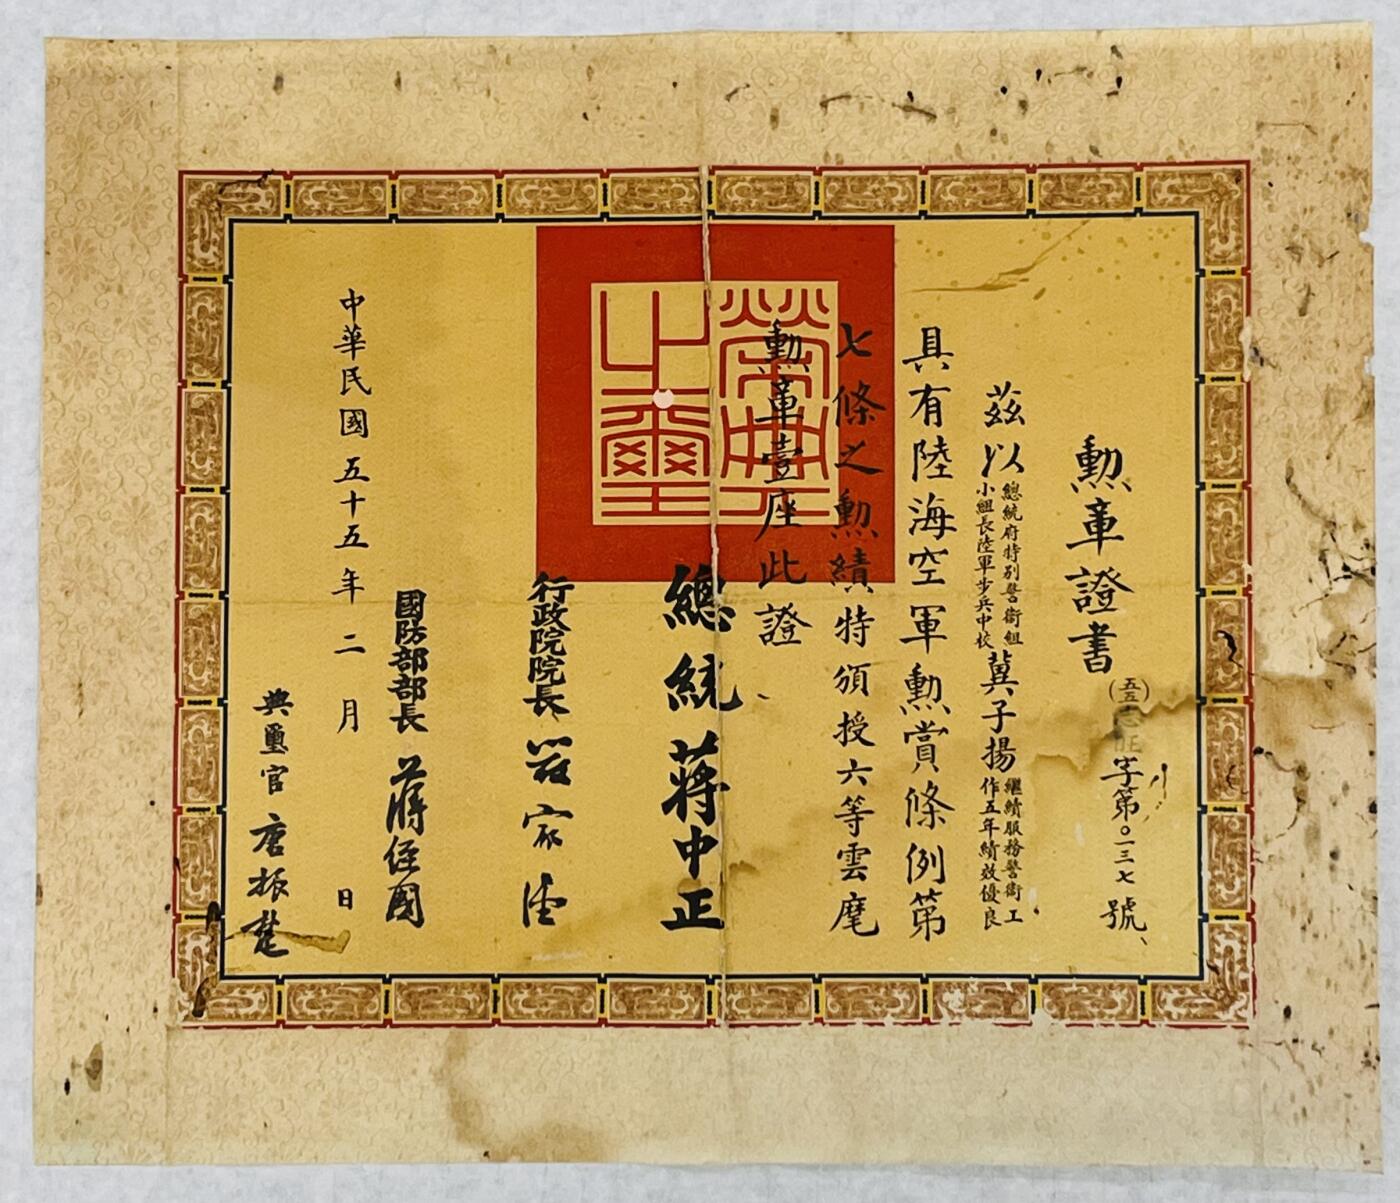 勳章證書
(五五)忠旺字第〇一三七號
茲以總統府特別警衛組小組長陸軍步兵中校冀子揚繼續服務警衛工作五年績效優良
具有陸海空軍勳賞條例第
七條之勳績特頒授六等雲麾
勳章壹座此證
榮典之璽
總統 蔣中正
行政院院長 嚴家淦
國防部部長 蔣經國
中華民國五十五年二月 日
典璽官 唐振楚